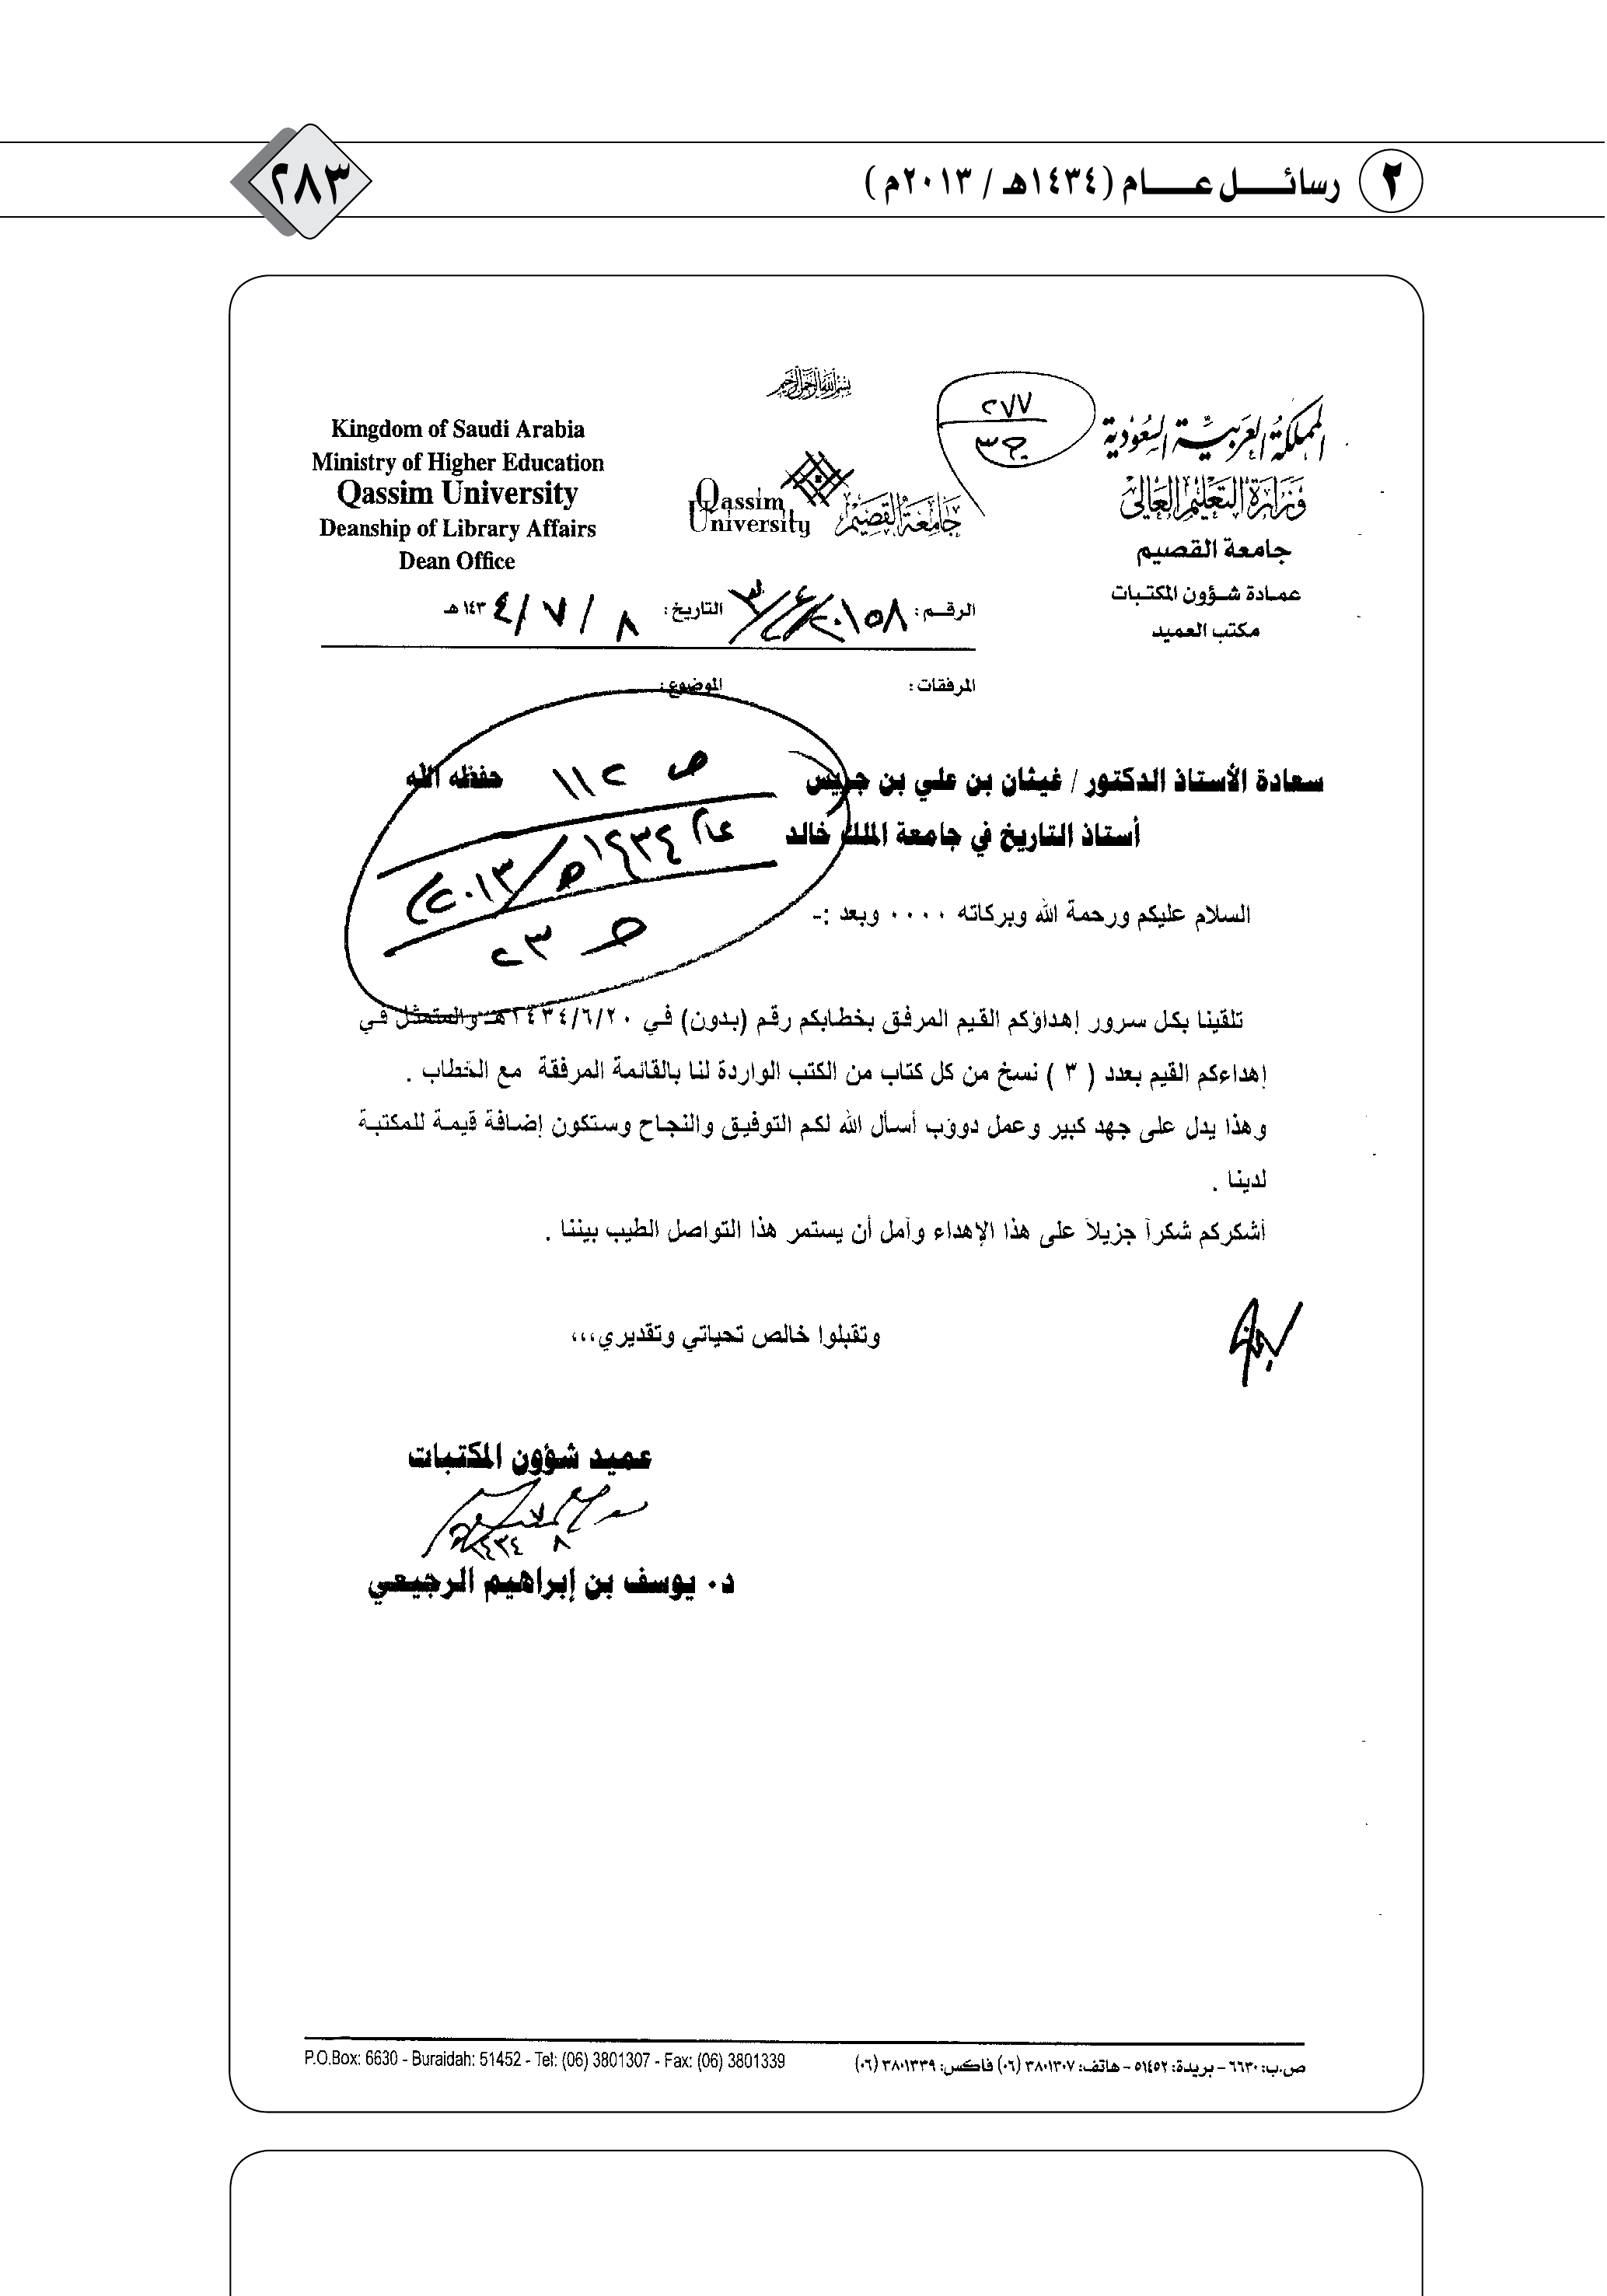 ٢ رسائل عام (١٤٣٤هـ / ٢٠١٣م)
٢٨٣
بسم الله الرحمن الرحيم
٢٧٧
ج ٣
المملكة العربية السعودية
وزارة التعليم العالي
جامعة القصيم
عمادة شؤون المكتبات
مكتب العميد
Qassim University
جامعة القصيم
Kingdom of Saudi Arabia
Ministry of Higher Education
Qassim University
Deanship of Library Affairs
Dean Office
الرقم: التاريخ: ٨ / ٧ / ١٤٣٤ هـ
المرفقات: الموضوع:
سعادة الأستاذ الدكتور / غيثان بن علي بن جريس حفظه الله
أستاذ التاريخ في جامعة الملك خالد
ص ١١٢
عام ١٤٣٤هـ / ٢٠١٣م
السلام عليكم ورحمة الله وبركاته ٠٠٠٠ وبعد :-
تلقينا بكل سرور إهداؤكم القيم المرفق بخطابكم رقم (بدون) في ١٤٣٤/٦/٢٠هـ والمتمثل في
إهداءكم القيم بعدد ( ٣ ) نسخ من كل كتاب من الكتب الواردة لنا بالقائمة المرفقة مع الخطاب .
وهذا يدل على جهد كبير وعمل دوؤب أسأل الله لكم التوفيق والنجاح وستكون إضافة قيمة للمكتبة
لدينا .
أشكركم شكراً جزيلاً على هذا الإهداء وآمل أن يستمر هذا التواصل الطيب بيننا .
وتقبلوا خالص تحياتي وتقديري،،،
عميد شؤون المكتبات
د. يوسف بن إبراهيم الرجيعي
ص.ب: ٦٦٣٠ – بريدة: ٥١٤٥٢ – هاتف: ٣٨٠١٣٠٧ (٠٦) فاكس: ٣٨٠١٣٣٩ (٠٦)
P.O.Box: 6630 - Buraidah: 51452 - Tel: (06) 3801307 - Fax: (06) 3801339